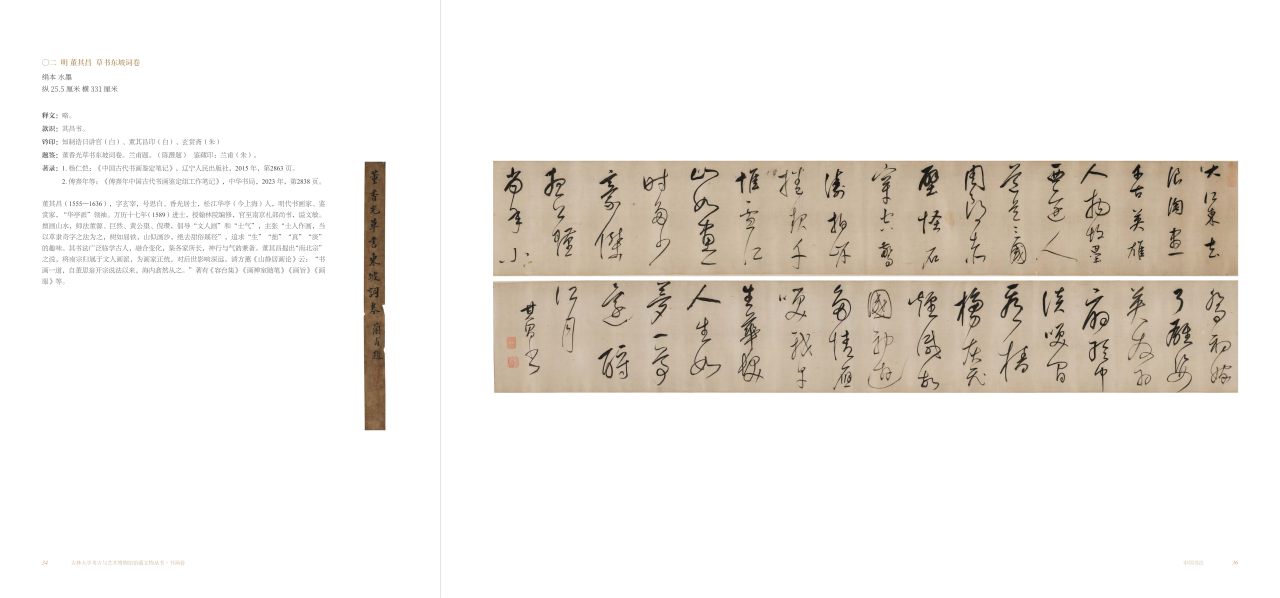 〇二 明 董其昌 草书东坡词卷
绢本 水墨
纵 25.5 厘米 横 331 厘米
释文：略。
款识：其昌书。
钤印：知制诰日讲官（白）、董其昌印（白）、玄赏斋（朱）
题签：董香光草书东坡词卷。兰甫题。（陈澧题） 鉴藏印：兰甫（朱）。
著录：1. 杨仁恺：《中国古代书画鉴定笔记》，辽宁人民出版社，2015 年，第2863 页。
2. 傅熹年等：《傅熹年中国古代书画鉴定组工作笔记》，中华书局，2023 年，第2838 页。
董其昌（1555—1636），字玄宰，号思白、香光居士，松江华亭（今上海）人，明代书画家、鉴
赏家，“华亭派”领袖。万历十七年（1589）进士，授翰林院编修，官至南京礼部尚书，谥文敏。
擅画山水，师法董源、巨然、黄公望、倪瓒，倡导“文人画”和“士气”，主张“士人作画，当
以草隶奇字之法为之，树如屈铁，山似画沙，绝去甜俗蹊径”，追求“生”“拙”“真”“淡”
的趣味。其书法广泛临学古人，融合变化，集各家所长，神行与气韵兼备。董其昌提出“南北宗”
之说，将南宗归属于文人画派，为画家正统，对后世影响深远。清方薰《山静居画论》云：“书
画一道，自董思翁开宗说法以来，海内翕然从之。”著有《容台集》《画禅室随笔》《画旨》《画
眼》等。
董香光草書東坡詞卷 蘭甫題
大江東去
浪淘盡
千古英雄
人物故壘
西邊人
道是三國
周郎赤
壁怪石
穿空驚
濤拍岸
捲起千
堆雪江
山如畫一
时多少
豪傑
想公瑾
當年小
喬初嫁
了雄姿
英發羽
扇綸巾
談笑間
看檣
櫓灰飛
煙滅故
國神遊
多情應
笑我早
生華髮
人生如
夢一尊
還酹
江月
其昌书
34 吉林大学考古与艺术博物馆馆藏文物丛书·书画卷
中国书法 36